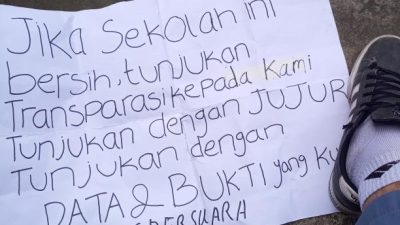 Jika Sekolah ini
bersih, tunjukan
Transparasi kepada Kami
Tunjukan dengan JUJUR
Tunjukan dengan
DATA & BUKTI yang